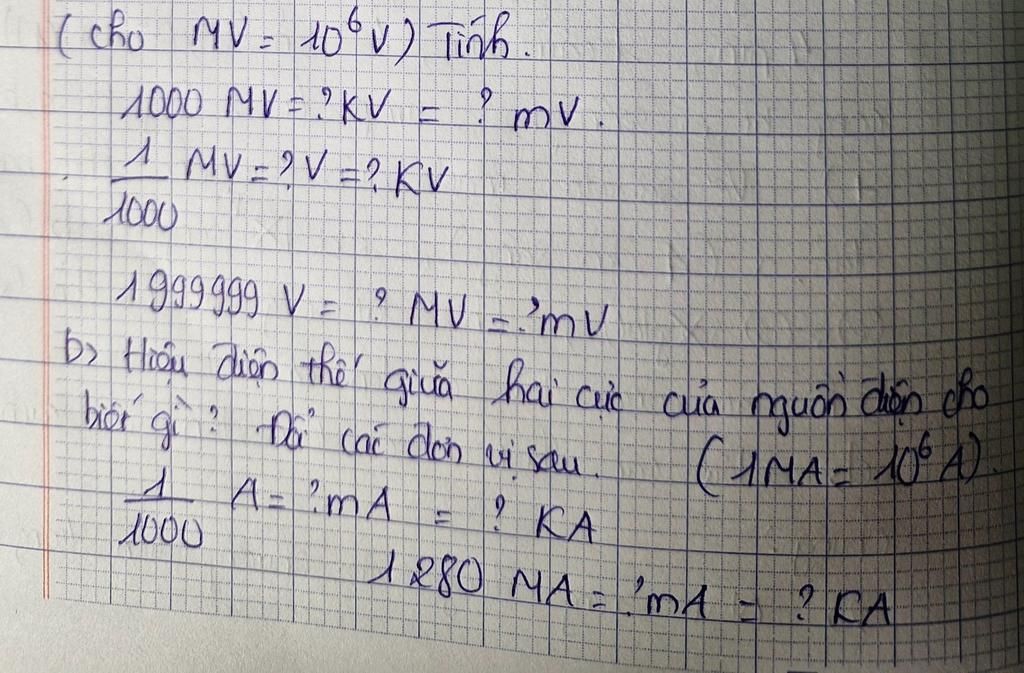 (cho MV = 10⁶V) Tính.
1000 MV = ? KV = ? mV.
1/1000 MV = ? V = ? KV
1999999 V = ? MV = ? mV
b> Hiệu điện thế giữa hai cực của nguồn điện cho
biết gì? Đổi các đơn vị sau. (1MA = 10⁶ A).
1/1000 A = ? mA = ? KA
1280 MA = ? mA = ? KA